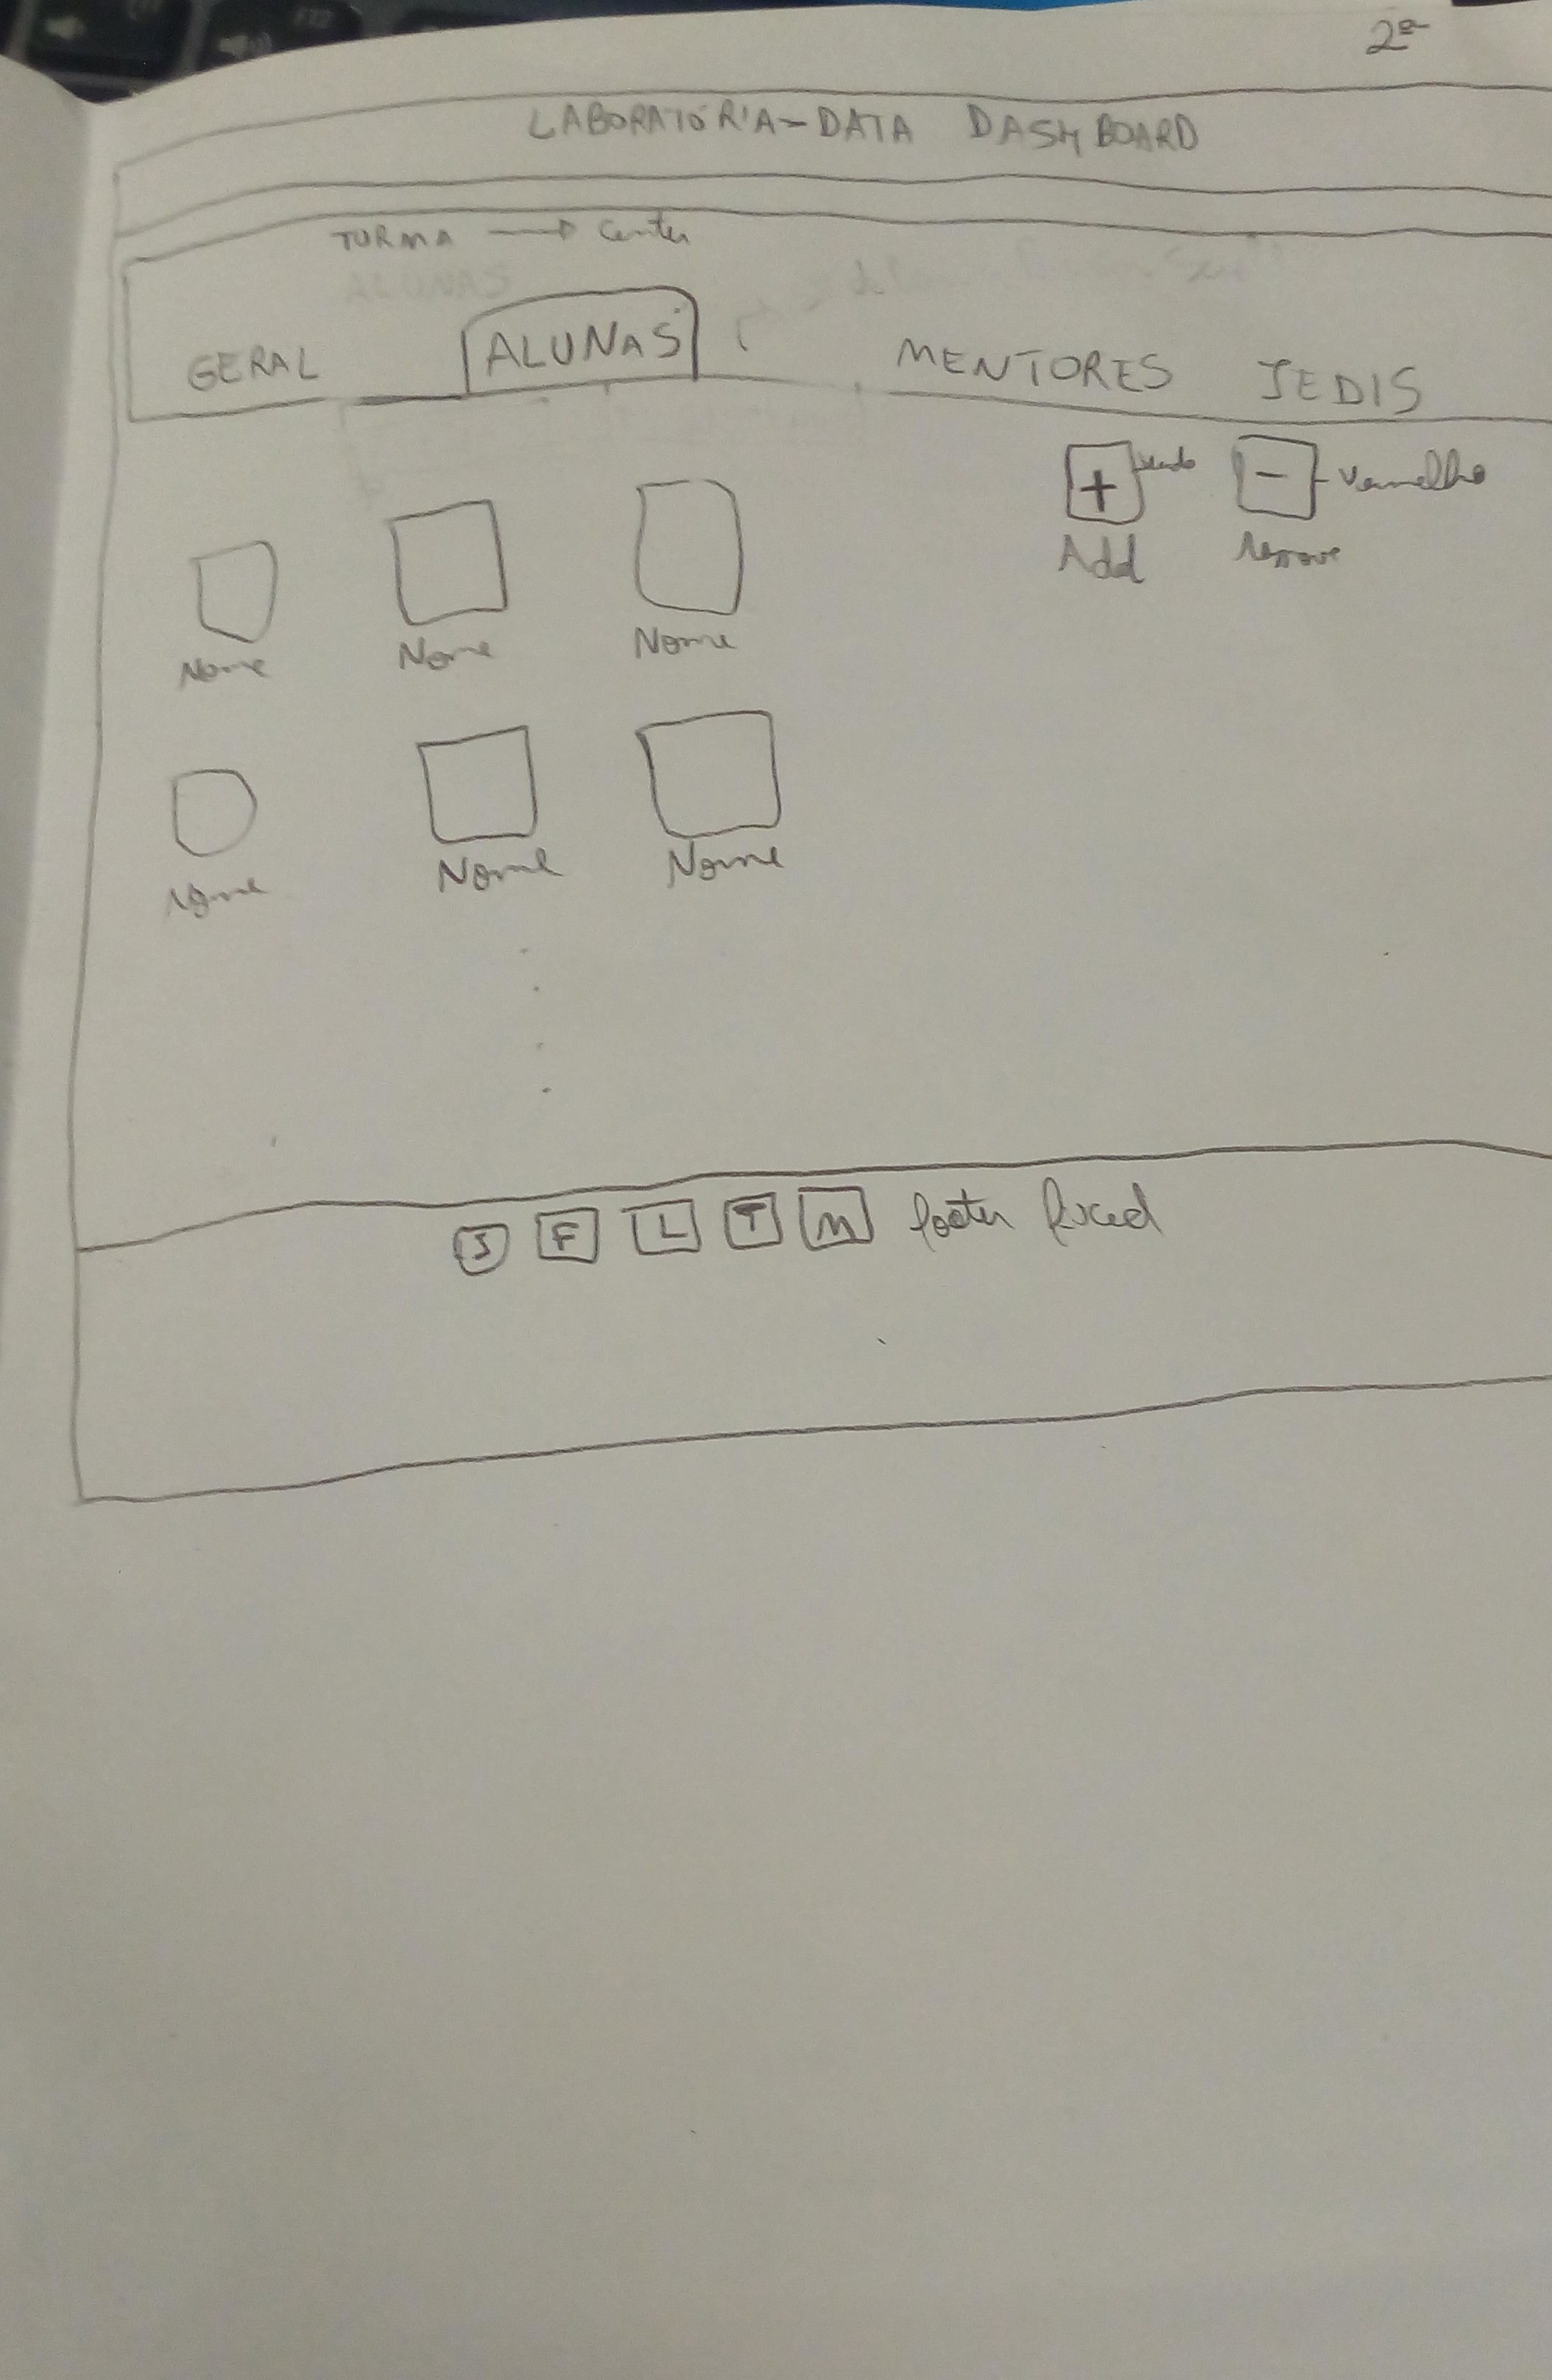 2ª
LABORATÓRIA-DATA DASHBOARD
TURMA → Center
ALUNAS
GERAL ALUNAS MENTORES JEDIS
+ verde - vermelho
Add Remove
Nome Nome Nome
Nome Nome Nome
J F L T M footer fixed